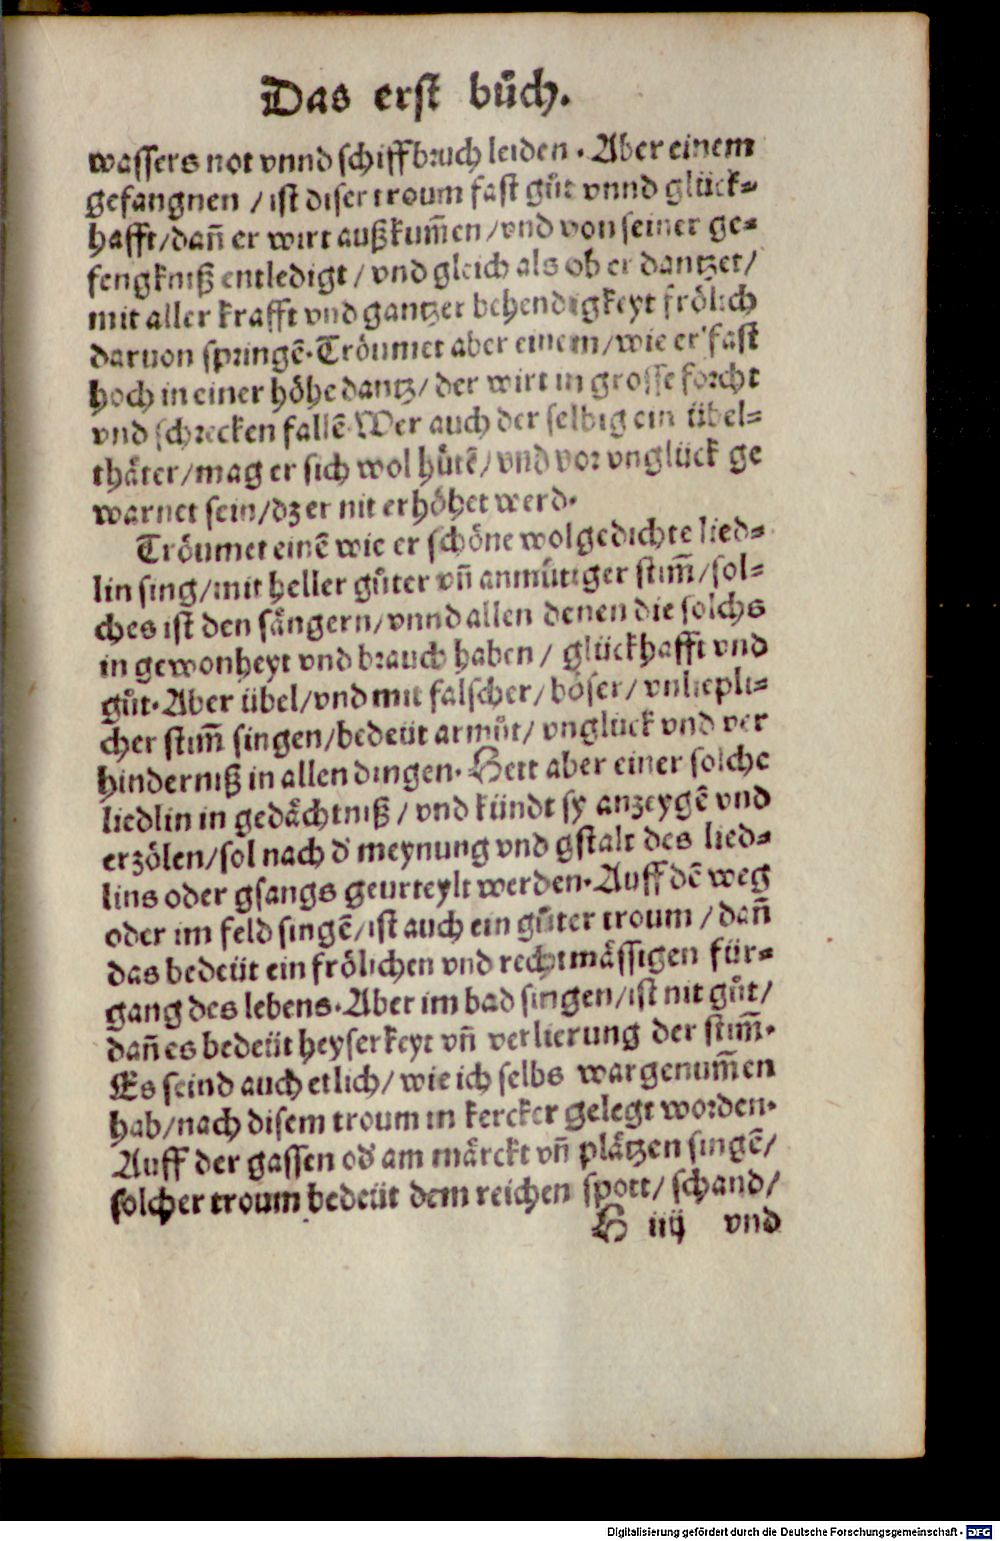 Das erst bůch.
wassers not vnnd schiffbruch leiden. Aber einem
gefangnen / ist diser troum fast gůt vnnd glück⸗
hafft/dañ er wirt außkum̃en/vnd von seiner ge⸗
fengkniß entledigt / vnd gleich als ob er dantzet/
mit aller krafft vnd gantzer behendigkeyt frölich
daruon springẽ. Tröumet aber einem/wie er fast
hoch in einer höhe dantz/ der wirt in grosse forcht
vnd schrecken fallẽ Wer auch der selbig ein übel⸗
thäter/mag er sich wol hůtẽ/vnd vor vnglück ge
warnet sein/dz er nit erhöhet werd.
Tröumet einẽ wie er schöne wolgedichte lied⸗
lin sing/mit heller gůter vñ anmůtiger stim̃/sol⸗
ches ist den sängern/vnnd allen denen die solchs
in gewonheyt vnd brauch haben / glückhafft vnd
gůt. Aber übel/vnd mit falscher/böser/ vnliepli⸗
cher stim̃ singen/bedeüt armůt/ vnglück vnd ver
hinderniß in allen dingen. Hett aber einer solche
liedlin in gedächtniß / vnd kündt sy anzeygẽ vnd
erzölen/sol nach d' meynung vnd gstalt des lied⸗
lins oder gsangs geurteylt werden. Auff dẽ weg
oder im feld singẽ/ist auch ein gůter troum / dañ
das bedeüt ein frölichen vnd rechtmässigen für⸗
gang des lebens. Aber im bad singen/ist nit gůt/
dañ es bedeüt heyserkeyt vñ verlierung der stim̃.
Es seind auch etlich/ wie ich selbs wargenum̃en
hab/nach disem troum in kercker gelegt worden.
Auff der gassen od' am märckt vñ plätzen singẽ/
solcher troum bedeüt dem reichen spott/ schand/
H iiij vnd
Digitalisierung gefördert durch die Deutsche Forschungsgemeinschaft - DFG